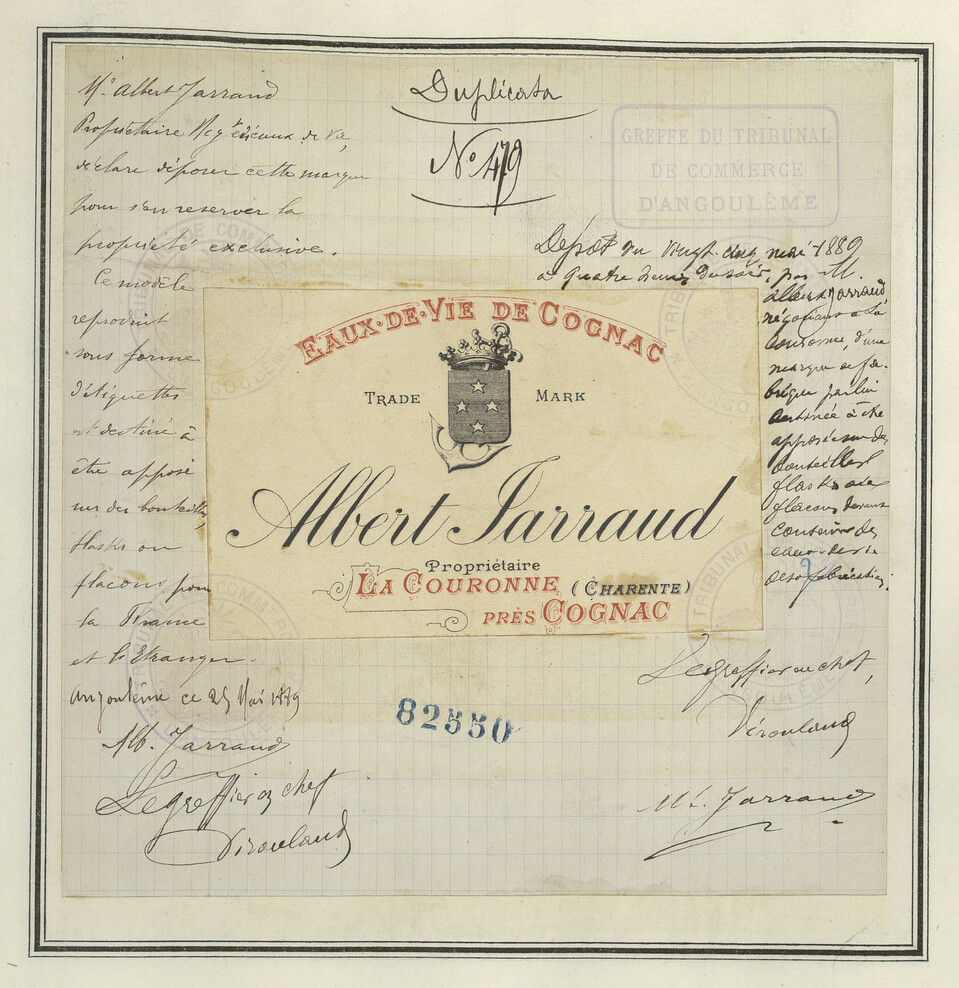 Duplicata
No 479
GREFFE DU TRIBUNAL
DE COMMERCE
D'ANGOULÊME
Mr Albert Jarraud
Propriétaire Negt eaux de vie,
déclare déposer cette marque
pour s'en reserver la
propriété exclusive.
Ce modèle
reproduit
sous forme
d'étiquettes
est destiné à
être apposé
sur des bouteilles,
flasks ou
flacons pour
la France
et l'Etranger.
Angoulême ce 25 Mai 1889
Alb. Jarraud
Le greffier en chef
Dépôt du vingt cinq mai 1889
à quatre heures du soir, par M.
Albert Jarraud
négociant à La
Couronne, d'une
marque de fa-
brique par lui
destinée à être
apposée sur des
bouteilles
flasks ou
flacons devant
contenir des
eaux-de-vie
de sa fabrication.
Le greffier en chef,
Alb. Jarraud
EAUX-DE-VIE DE COGNAC
TRADE MARK
Albert Jarraud
Propriétaire
LA COURONNE (CHARENTE)
PRÈS COGNAC
82550